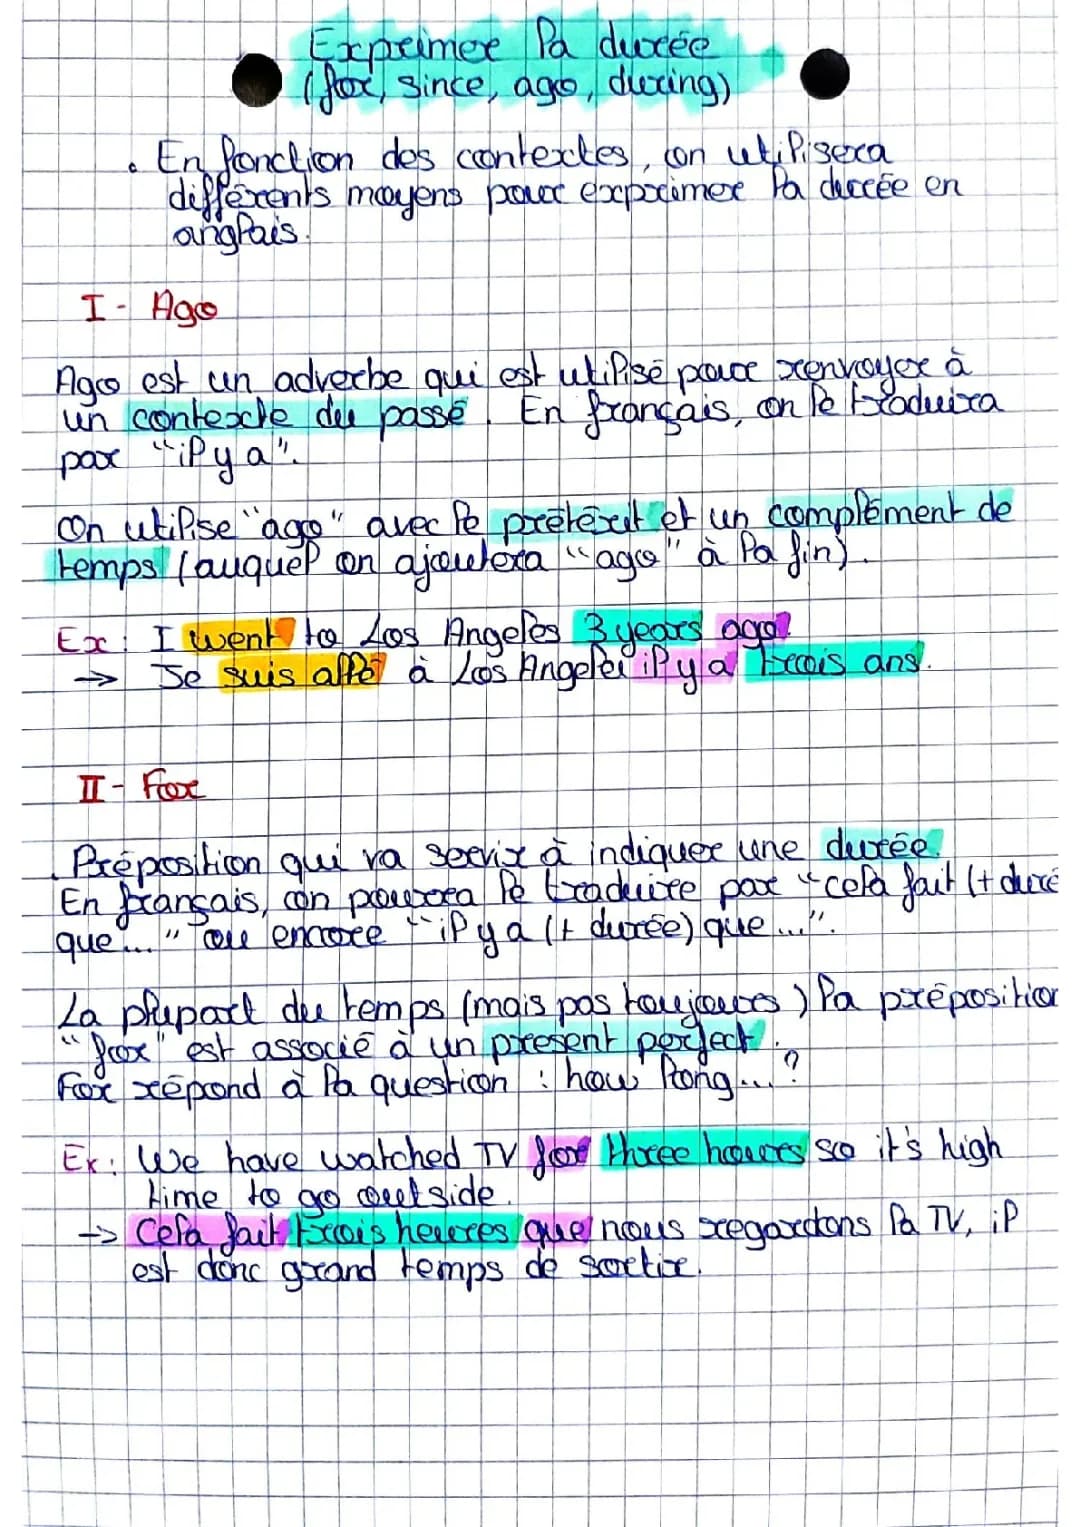 Exprimer la durée
(for, since, ago, during)
• En fonction des contextes, on utilisera
différents moyens pour exprimer la durée en
anglais.
I - Ago
Ago est un adverbe qui est utilisé pour renvoyer à
un contexte du passé. En français, on le traduira
par "il y a".
On utilise "ago" avec le prétérit et un complément de
temps (auquel on ajoutera "ago" à la fin).
Ex : I went to Los Angeles 3 years ago.
→ Je suis allé à Los Angeles il y a trois ans.
II - For
Préposition qui va servir à indiquer une durée.
En français, on pourra le traduire par "cela fait (+ duré
que..." ou encore "il y a (+ durée) que ...".
La plupart du temps (mais pas toujours) la préposition
"for" est associé à un present perfect.
For répond à la question : how long... ?
Ex : We have watched TV for three hours so it's high
time to go outside.
→ Cela fait trois heures que nous regardons la TV, il
est donc grand temps de sortir.